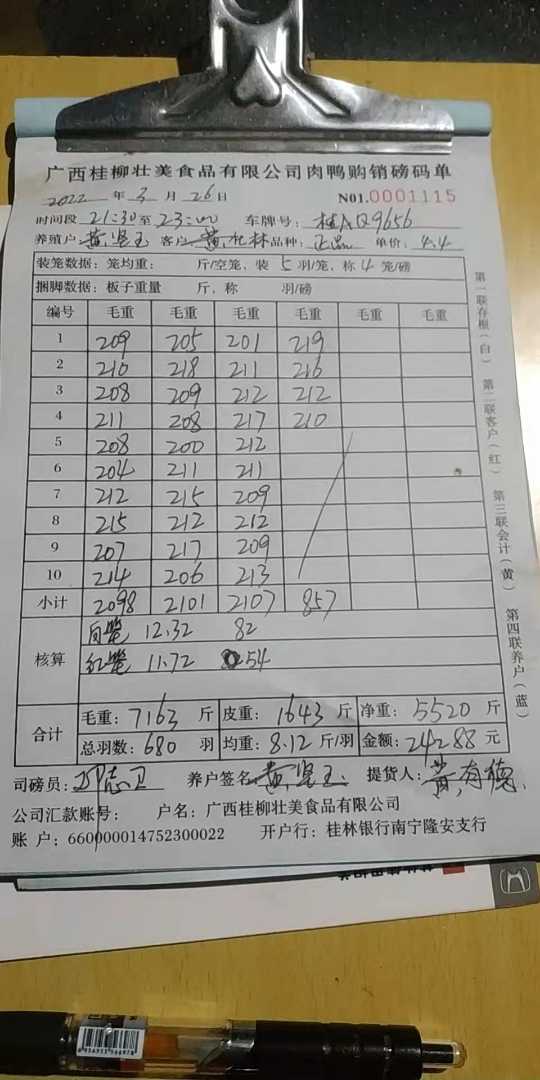 广西桂柳壮美食品有限公司肉鸭购销磅码单
2022 年 3 月 26 日 N01.0001115
时间段 21:30 至 23:00 车牌号: 桂AQ9656
养殖户 黄坚玉 客户 品种: 正品 单价: 4.4
装笼数据: 笼均重: 斤/空笼, 装 5 羽/笼, 称 4 笼/磅
捆脚数据: 板子重量 斤, 称 羽/磅
编号 毛重 毛重 毛重 毛重 毛重 毛重
1 209 205 201 219
2 210 218 211 216
3 208 209 212 212
4 211 208 217 210
5 208 200 212
6 204 211 211
7 212 215 209
8 215 212 212
9 207 217 209
10 214 206 213
小计 2098 2101 2107 857
核算 白笼 12.32 82
红笼 11.72 54
合计 毛重: 7163 斤 皮重: 1643 斤 净重: 5520 斤
总羽数: 680 羽 均重: 8.12 斤/羽 金额: 24288 元
司磅员: 邓志卫 养户签名 黄坚玉 提货人: 黄有德
公司汇款账号: 户名: 广西桂柳壮美食品有限公司
账 户: 660000014752300022 开户行: 桂林银行南宁隆安支行
第一联存根(白) 第二联客户(红) 第三联会计(黄) 第四联养户(蓝)